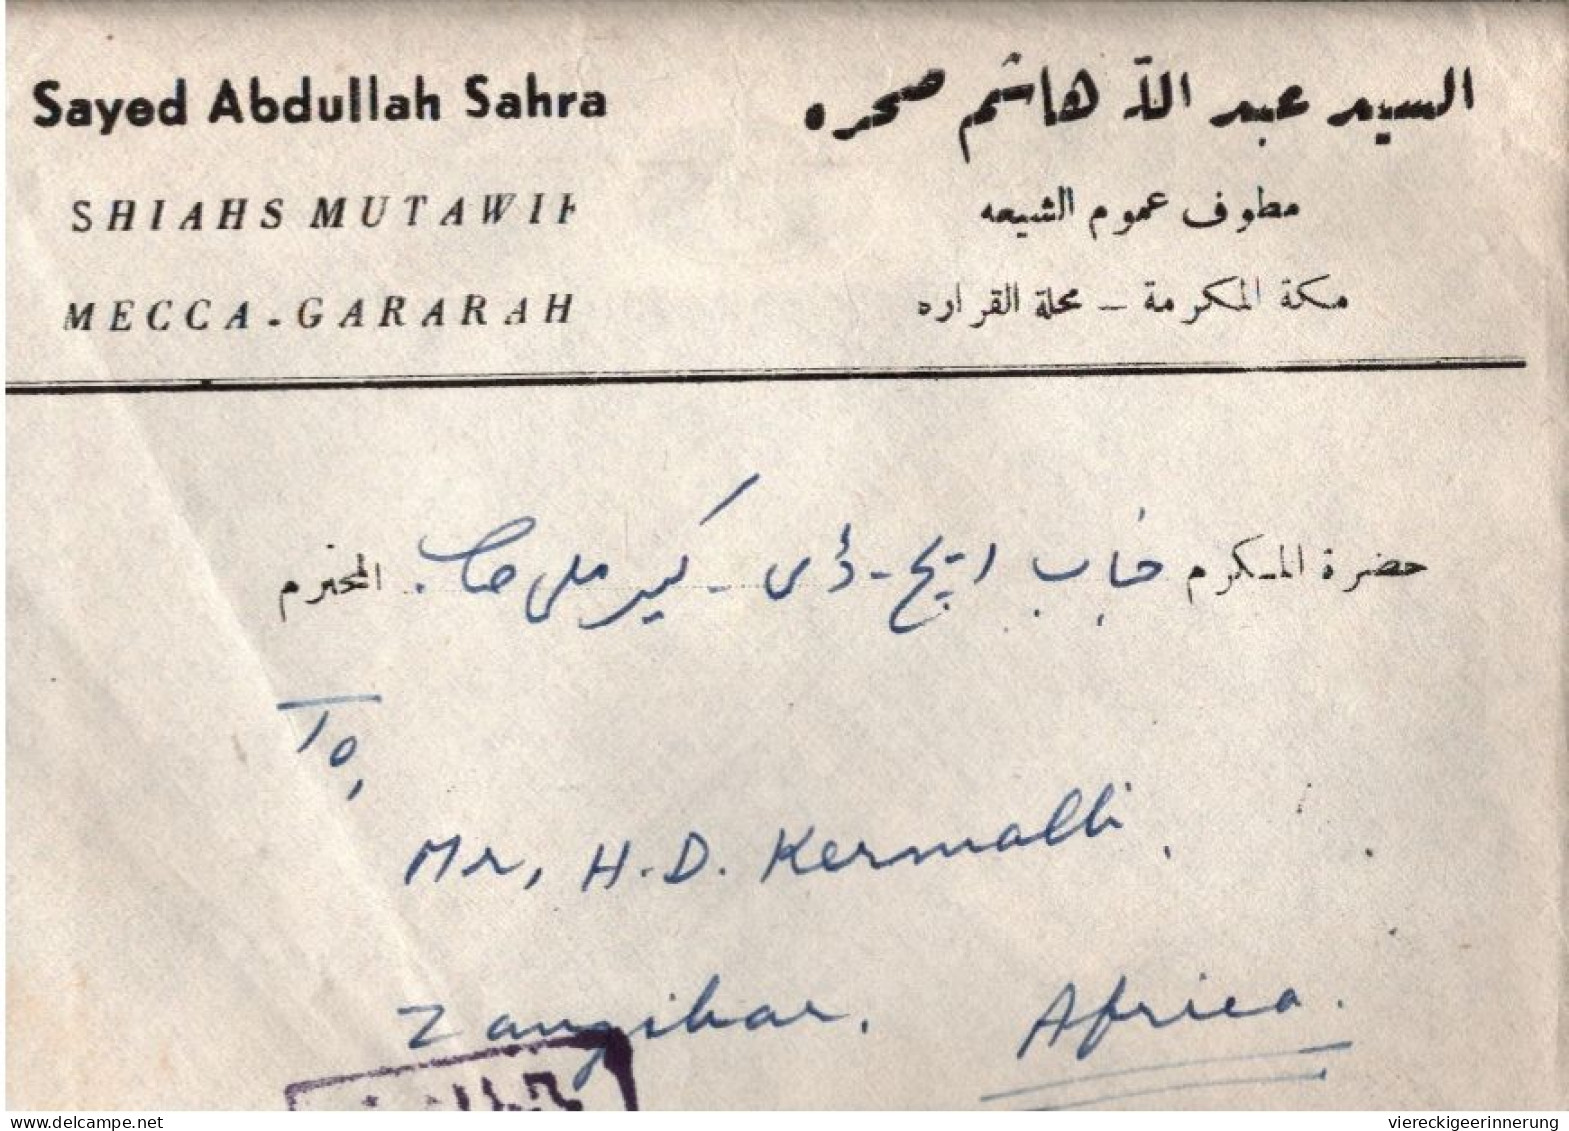 Sayed Abdullah Sahra
السيد عبد الله هاشم صحره
SHIAHS MUTAWIF
مطوف عموم الشيعه
MECCA - GARARAH
مكة المكرمة – محلة القراره
حضرة المكرم جناب ايچ - ڈی - كيرملى صاحب المحترم
To,
Mr, H.D. Kermalli,
Zanzibar. Africa.
delcampe.net
viereckigeerinnerung